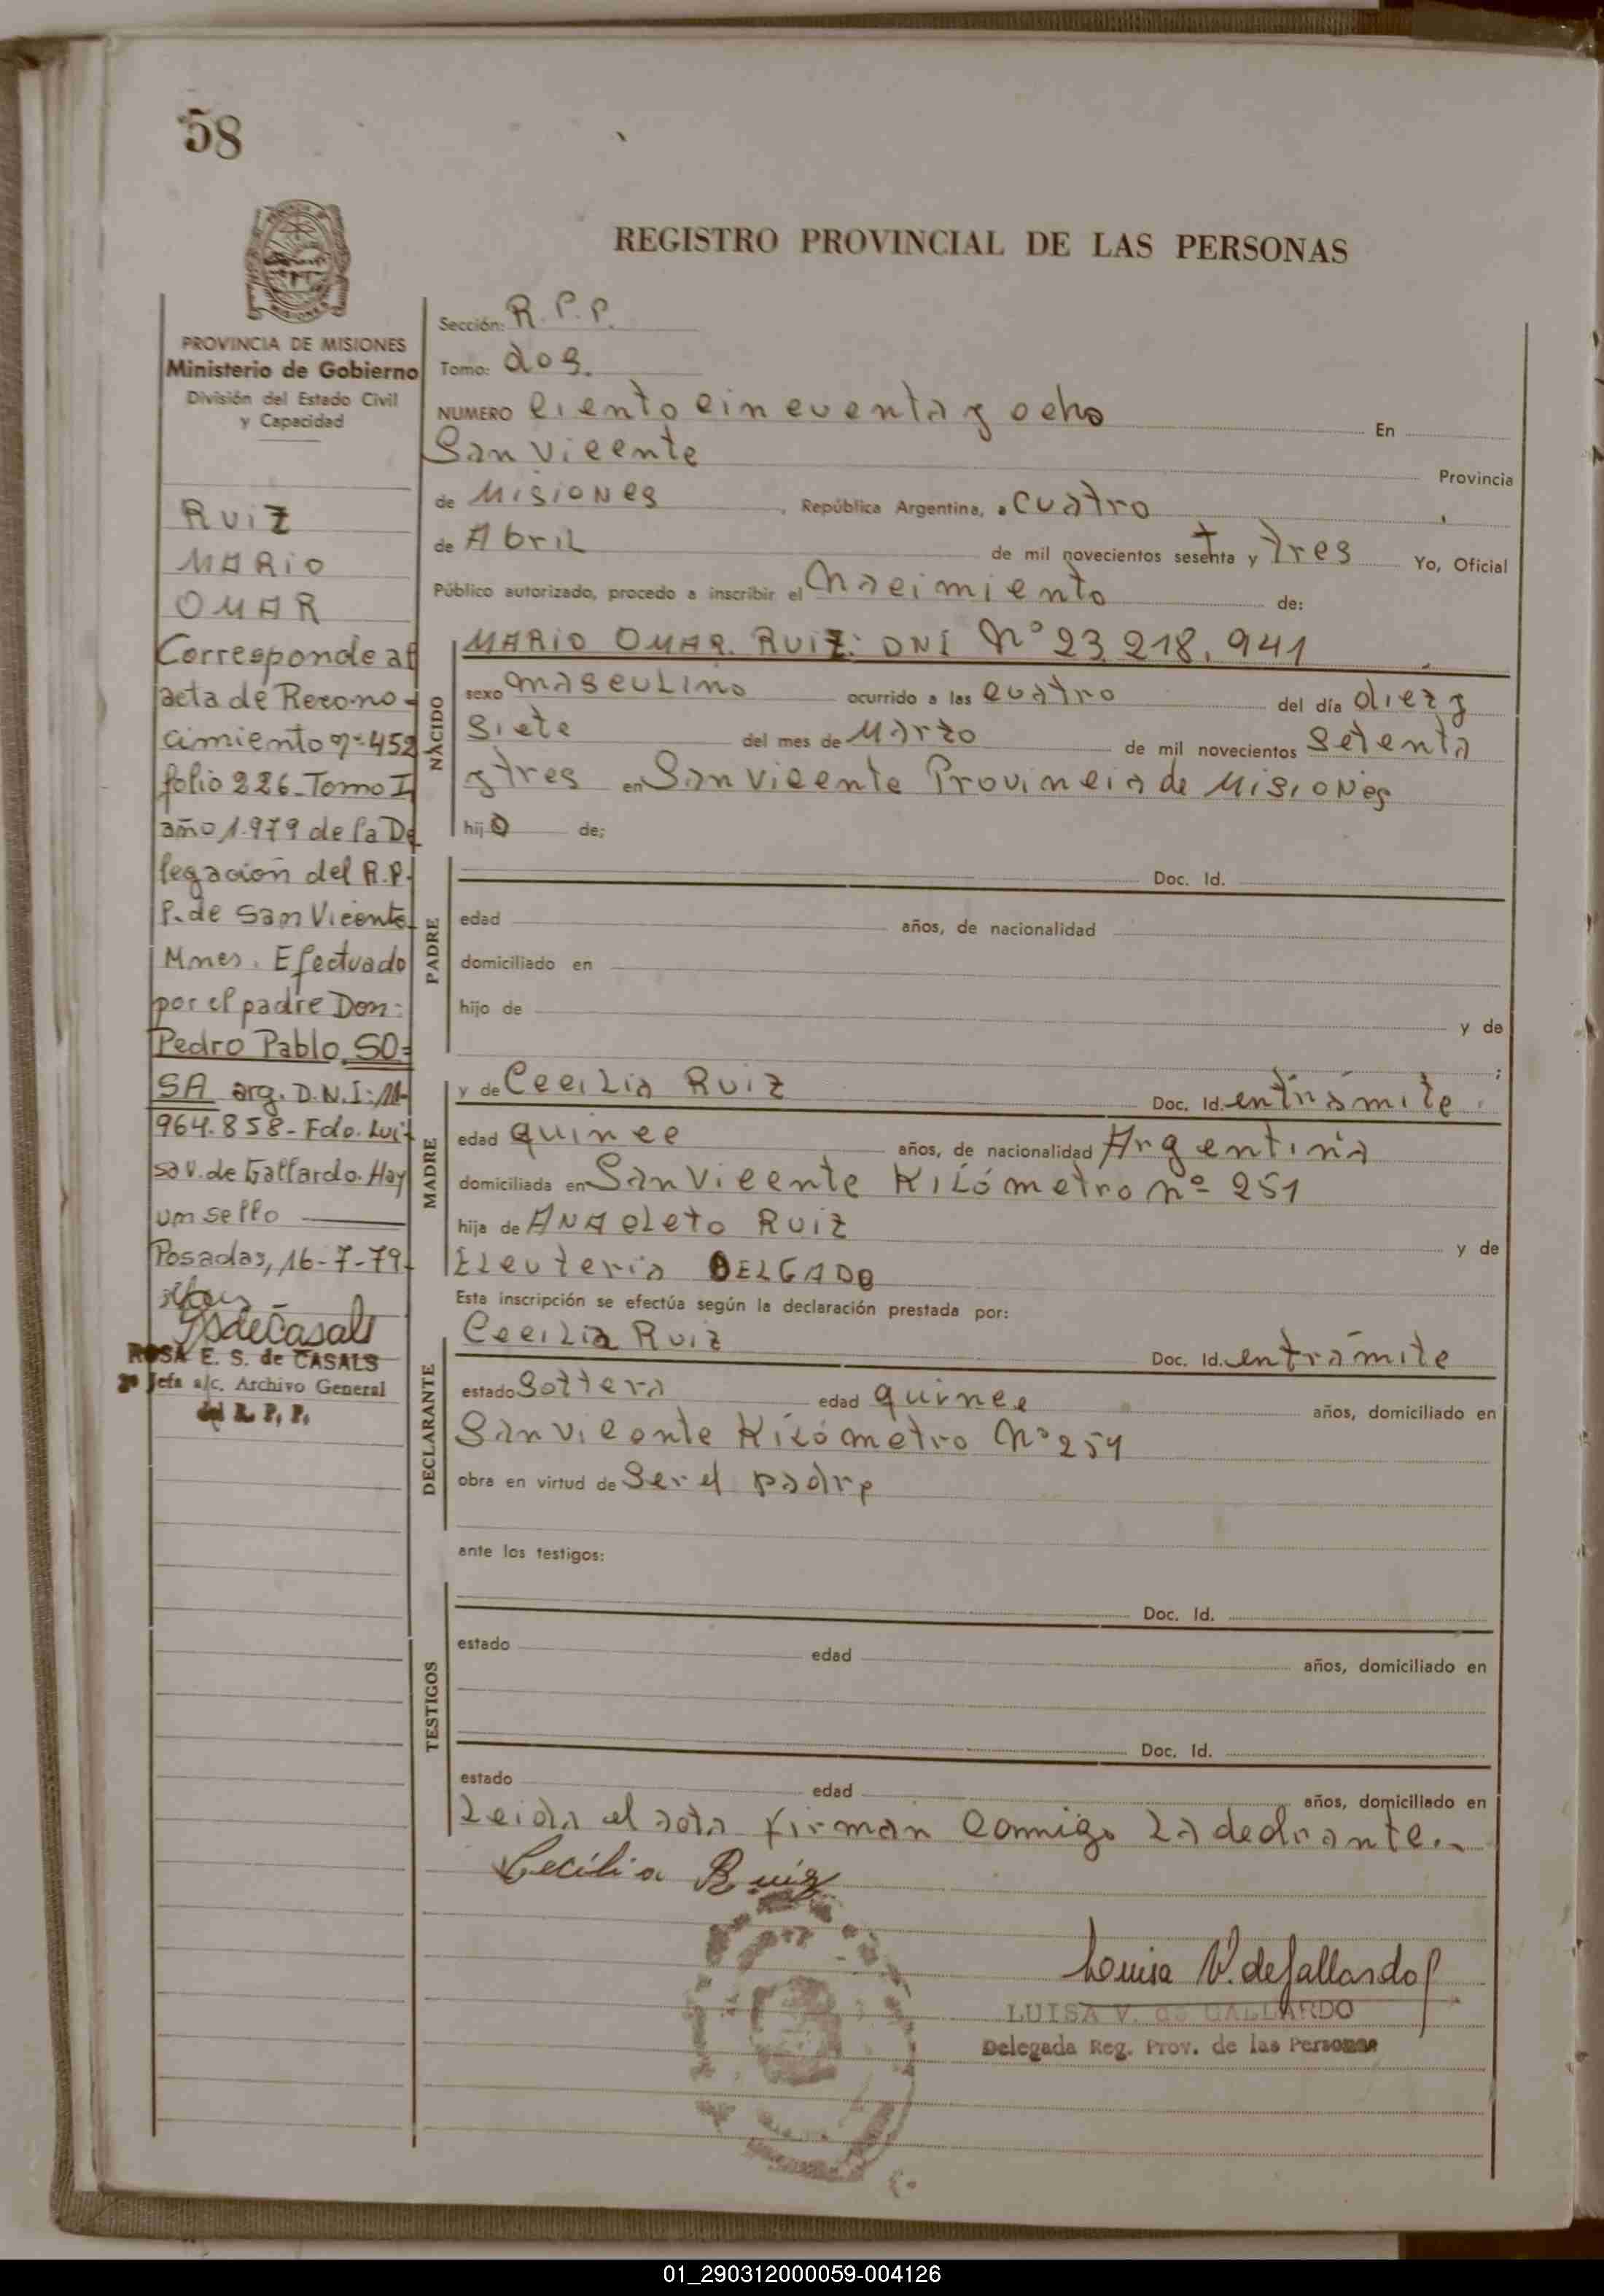 58
REGISTRO PROVINCIAL DE LAS PERSONAS
PROVINCIA DE MISIONES
Ministerio de Gobierno
División del Estado Civil
y Capacidad
RUIZ
MARIO
OMAR
Corresponde al
acta de Recono-
cimiento nº 452
folio 226-Tomo I
año 1.979 de la De
legación del R.P.
P. de San Vicente
Mnes. Efectuado
por el padre Don:
Pedro Pablo SO=
SA arg. D.N.I: 11-
964.858- Fdo. Lui
sa V. de Gallardo. Hay
un sello
Posadas, 16-7-79-
ROSA E. S. de CASALS
2º Jefa a/c. Archivo General
del R. P. P.
Sección: R. P. P.
Tomo: dos.
NUMERO ciento cincuenta y ocho En
San Vicente Provincia
de Misiones, República Argentina, a cuatro
de Abril de mil novecientos sesenta y tres Yo, Oficial
Público autorizado, procedo a inscribir el nacimiento de:
NACIDO
MARIO OMAR. RUIZ: DNI Nº 23.218.941
sexo masculino ocurrido a las cuatro del día diez y
siete del mes de Marzo de mil novecientos setenta
y tres en San Vicente Provincia de Misiones
hijo de;
PADRE
Doc. Id.
edad años, de nacionalidad
domiciliado en
hijo de y de
;
MADRE
y de Cecilia Ruiz Doc. Id. en trámite
edad quince años, de nacionalidad Argentina
domiciliada en San Vicente Kilómetro nº 251
hija de Anacleto Ruiz y de
Eleuteria DELGADO
Esta inscripción se efectúa según la declaración prestada por:
DECLARANTE
Cecilia Ruiz Doc. Id. en trámite
estado Soltera edad quince años, domiciliado en
San Vicente Kilómetro Nº 251
obra en virtud de ser el padre
ante los testigos:
TESTIGOS
Doc. Id.
estado edad años, domiciliado en
Doc. Id.
estado edad años, domiciliado en
Leida el acta firman conmigo la declrante.
Cecilia Ruiz
Louisa V. de Gallardo
LUISA V. de GALLARDO
Delegada Reg. Prov. de las Personas
01_290312000059-004126